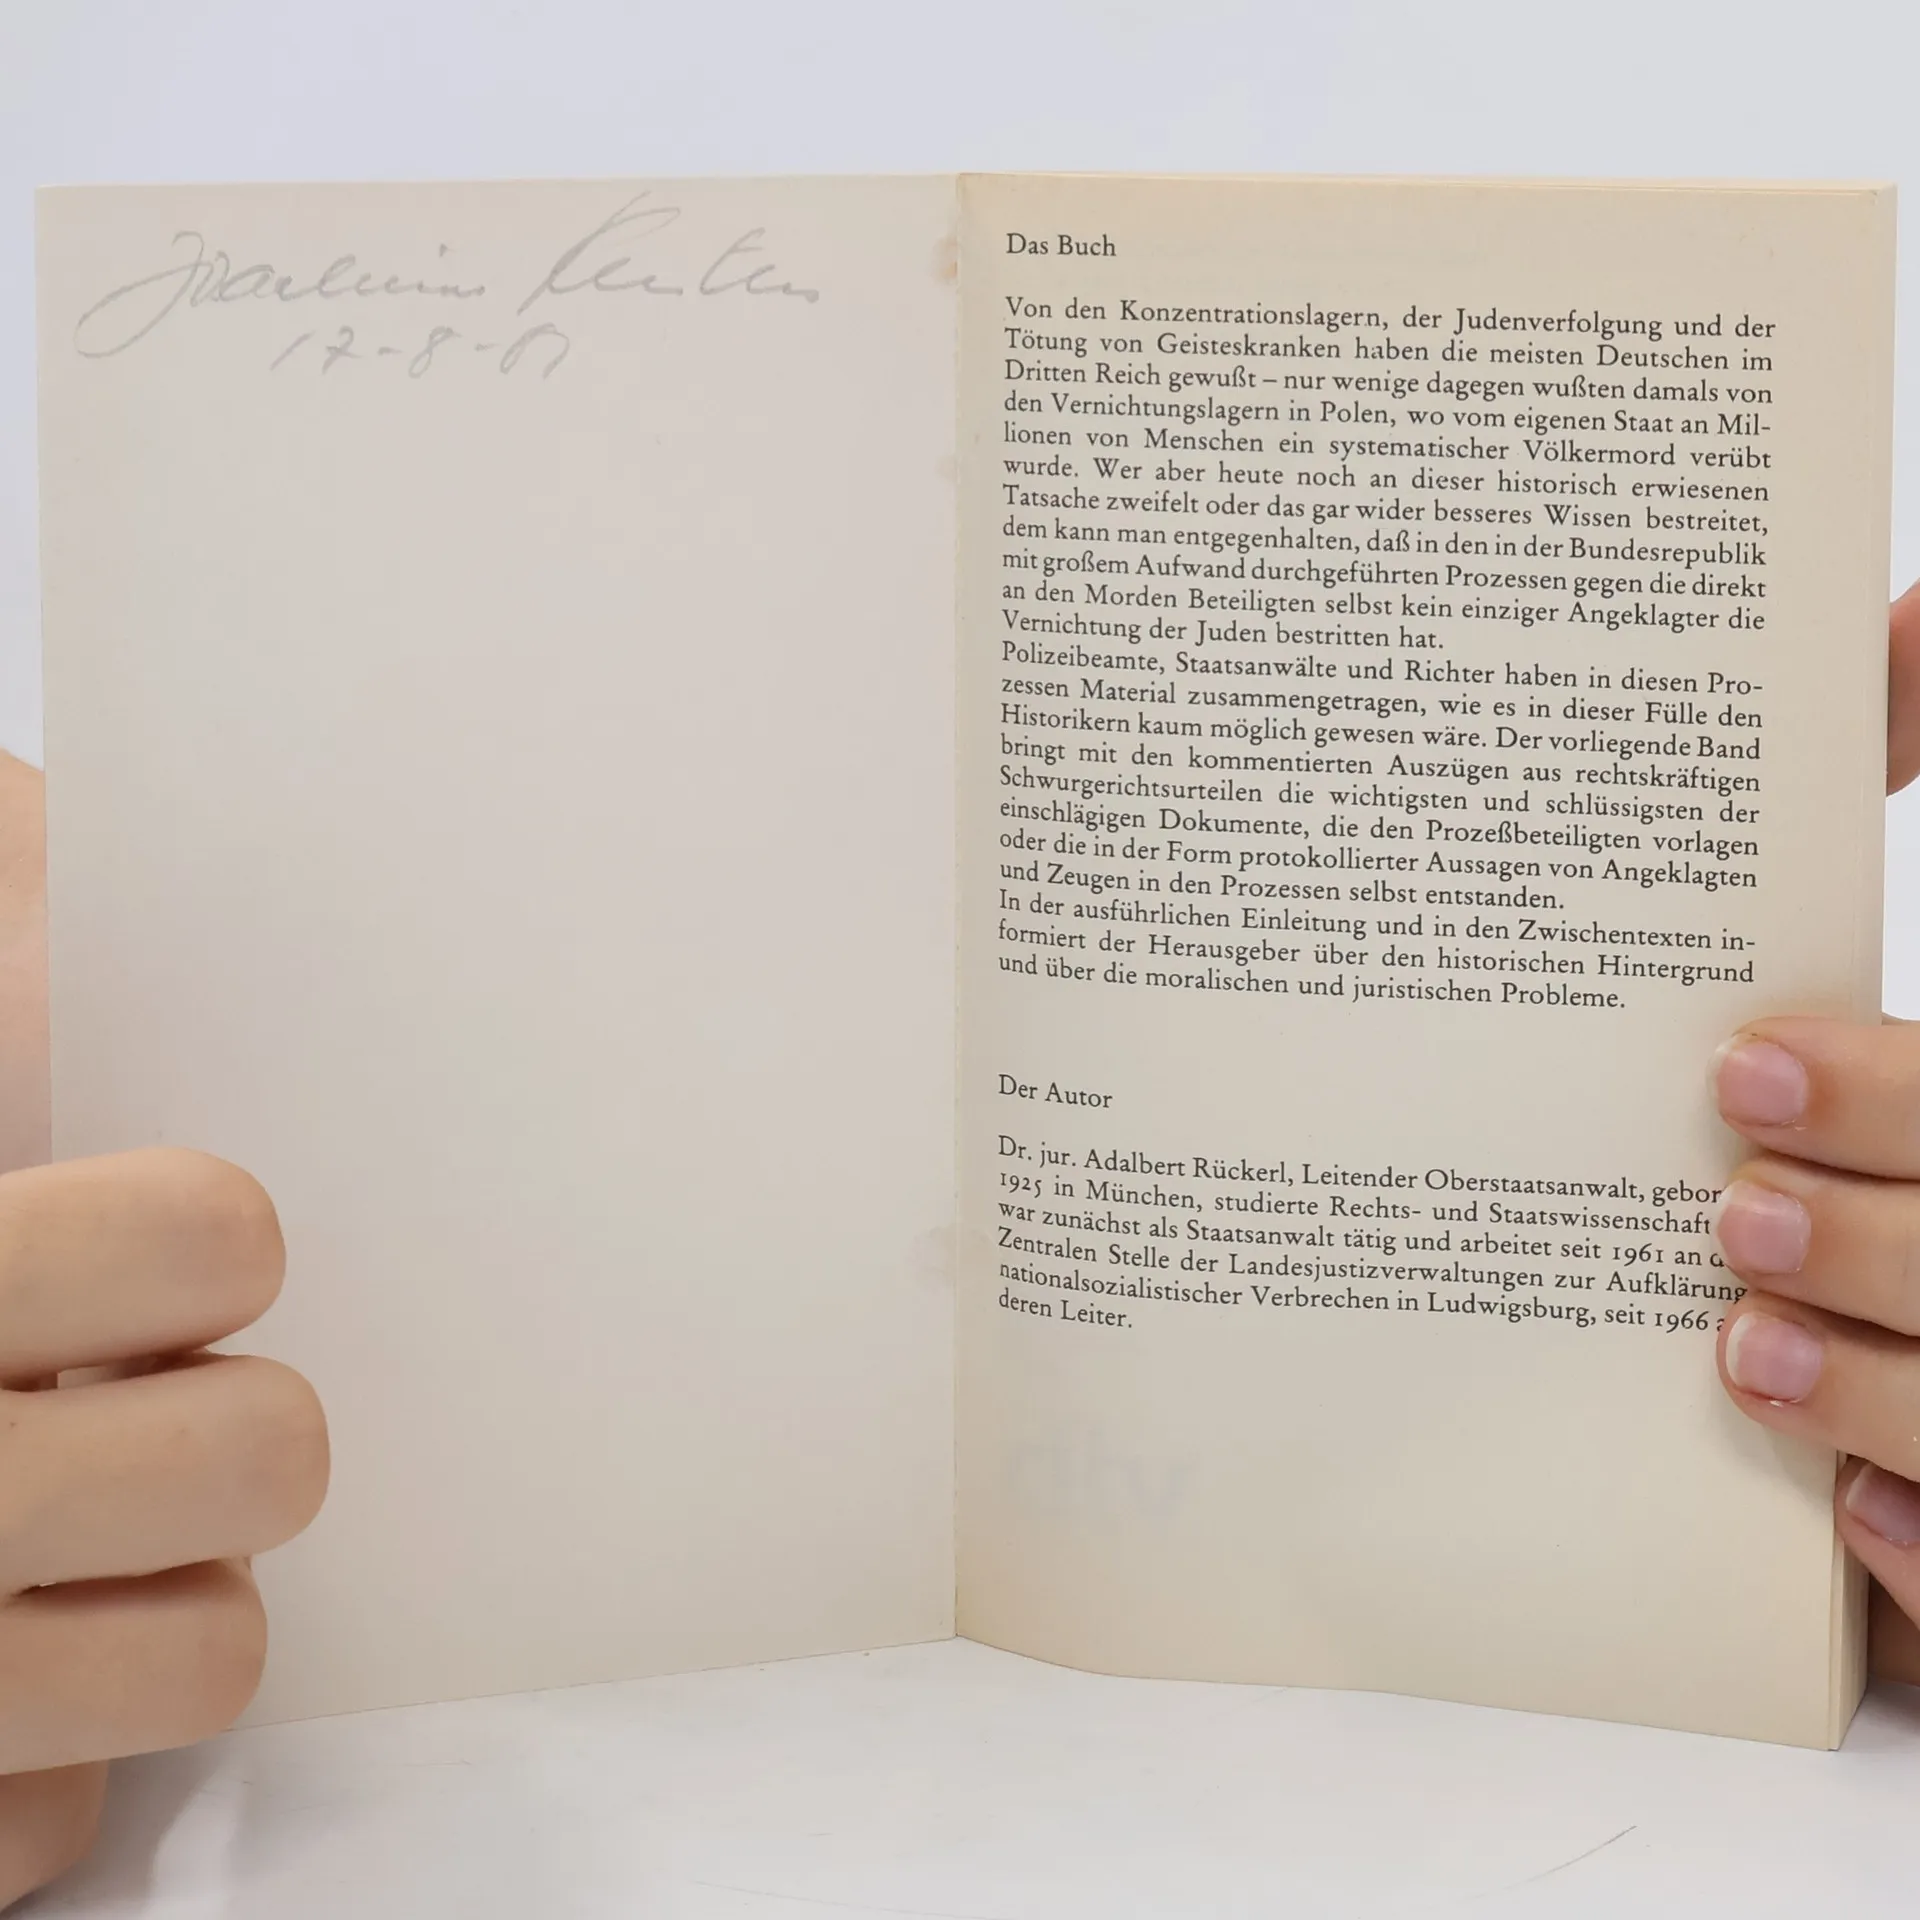 Joachim
17-8-81
Das Buch
Von den Konzentrationslagern, der Judenverfolgung und der
Tötung von Geisteskranken haben die meisten Deutschen im
Dritten Reich gewußt – nur wenige dagegen wußten damals von
den Vernichtungslagern in Polen, wo vom eigenen Staat an Mil-
lionen von Menschen ein systematischer Völkermord verübt
wurde. Wer aber heute noch an dieser historisch erwiesenen
Tatsache zweifelt oder das gar wider besseres Wissen bestreitet,
dem kann man entgegenhalten, daß in den in der Bundesrepublik
mit großem Aufwand durchgeführten Prozessen gegen die direkt
an den Morden Beteiligten selbst kein einziger Angeklagter die
Vernichtung der Juden bestritten hat.
Polizeibeamte, Staatsanwälte und Richter haben in diesen Pro-
zessen Material zusammengetragen, wie es in dieser Fülle den
Historikern kaum möglich gewesen wäre. Der vorliegende Band
bringt mit den kommentierten Auszügen aus rechtskräftigen
Schwurgerichtsurteilen die wichtigsten und schlüssigsten der
einschlägigen Dokumente, die den Prozeßbeteiligten vorlagen
oder die in der Form protokollierter Aussagen von Angeklagten
und Zeugen in den Prozessen selbst entstanden.
In der ausführlichen Einleitung und in den Zwischentexten in-
formiert der Herausgeber über den historischen Hintergrund
und über die moralischen und juristischen Probleme.
Der Autor
Dr. jur. Adalbert Rückerl, Leitender Oberstaatsanwalt, gebor
1925 in München, studierte Rechts- und Staatswissenschaft
war zunächst als Staatsanwalt tätig und arbeitet seit 1961 an
Zentralen Stelle der Landesjustizverwaltungen zur Aufklärung
nationalsozialistischer Verbrechen in Ludwigsburg, seit 1966
deren Leiter.